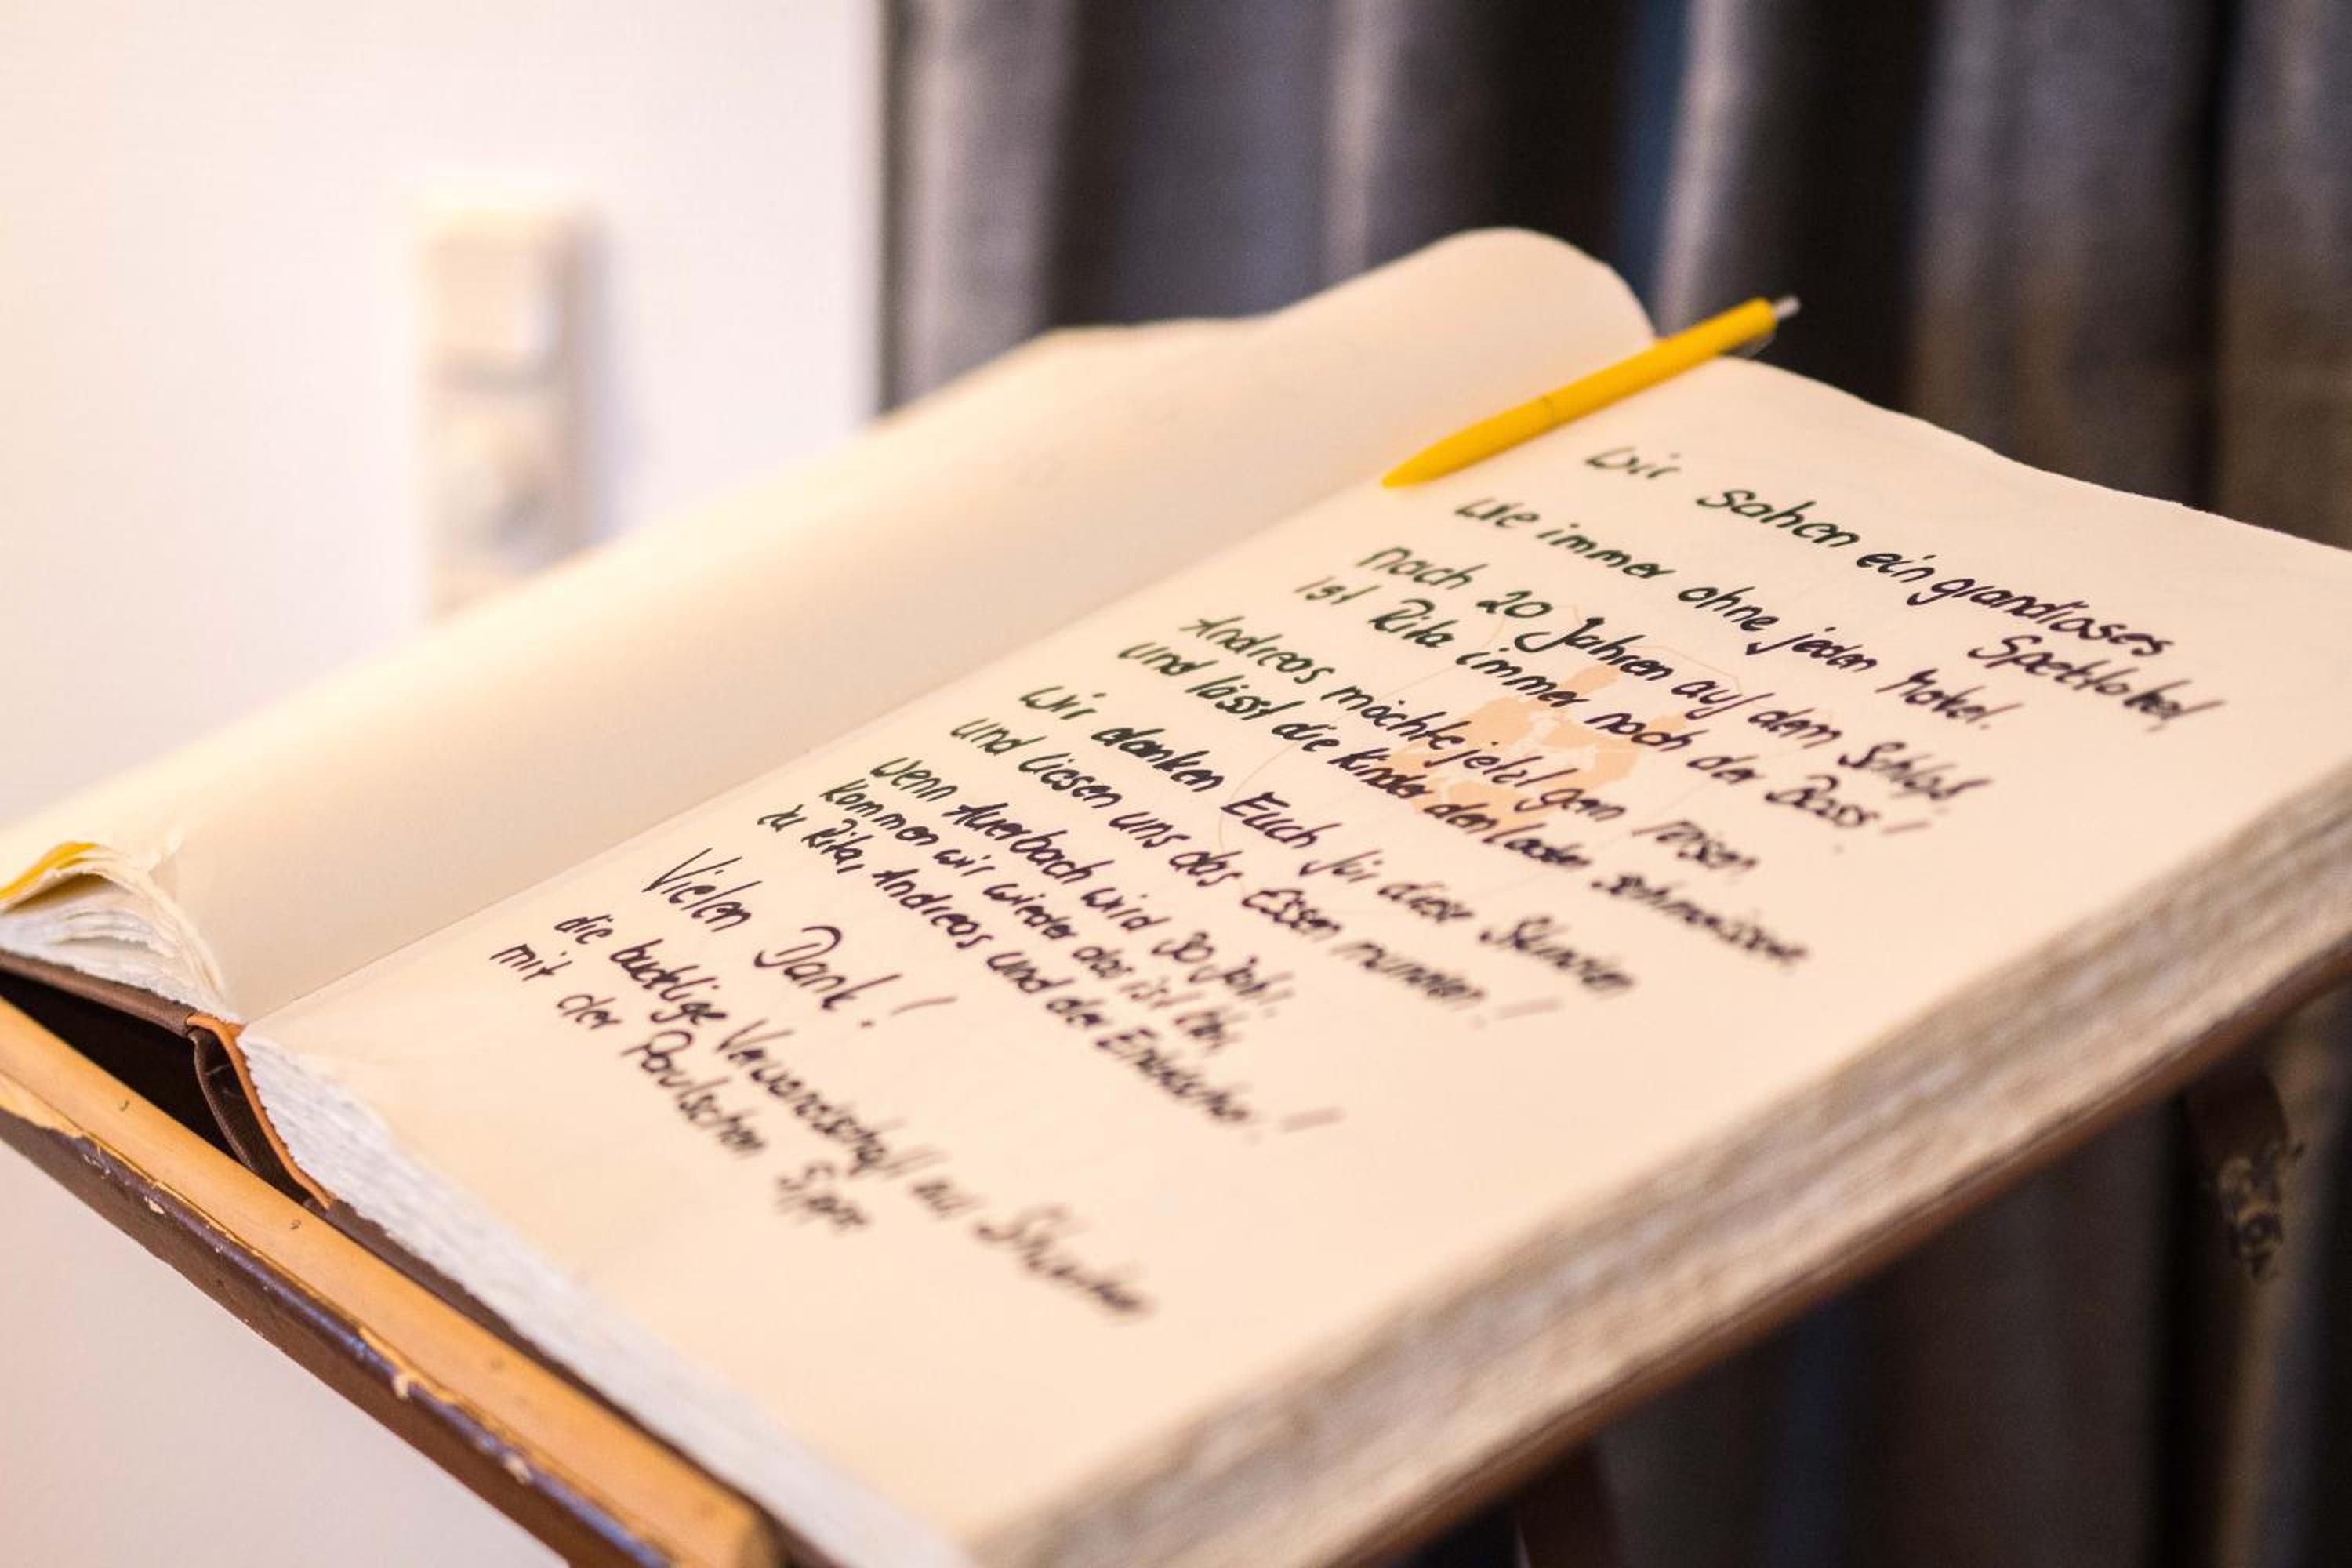 Wir sahen ein grandioses
Spektakel,
wie immer ohne jeden Makel.
Nach 20 Jahren auf dem Schloß,
ist Rita immer noch der Boss!
Andreas möchte jetzt gern reisen
und lässt die Kinder den Laden schmeissen.
Wir danken Euch für diese Stunden
und liesen uns das Essen munden!
Wenn Auerbach wird 30 Jahr,
kommen wir wieder das ist klar,
zu Rita, Andreas und der
Vielen Dank!
die bucklige Verwandschaft aus
mit der Paulschen